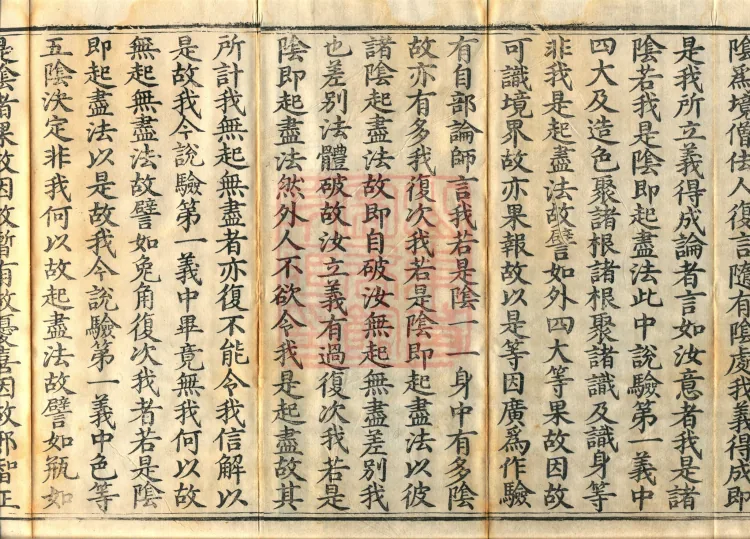 陰爲境僧佉人復言隨有陰處我義得成即
是我所立義得成論者言如汝意者我是諸
陰若我是陰即起盡法此中說驗第一義中
四大及造色聚諸根諸根聚諸識及識身等
非我是起盡法故譬如外四大等果故因故
可識境界故亦果報故以是等因廣爲作驗
有自部論師言我若是陰一一身中有多陰
故亦有多我復次我若是陰即起盡法以彼
諸陰起盡法故即自破汝無起無盡差別我
也差別法體破故汝立義有過復次我若是
陰即起盡法然外人不欲令我是起盡故其
所計我無起無盡者亦復不能令我信解以
是故我今說驗第一義中畢竟無我何以故
無起無盡法故譬如兔角復次我者若是陰
即起盡法以是故我今說驗第一義中色等
五陰決定非我何以故起盡法故譬如瓶如
是陰者果故因故暫有故憂喜因故邪智正